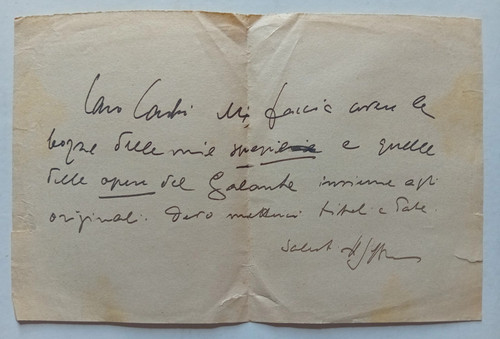 Caro Mi faccia avere le
bozze delle mie e quelle
delle opere del Galante insieme agli
originali. Devo metterci titoli e date.
Saluti